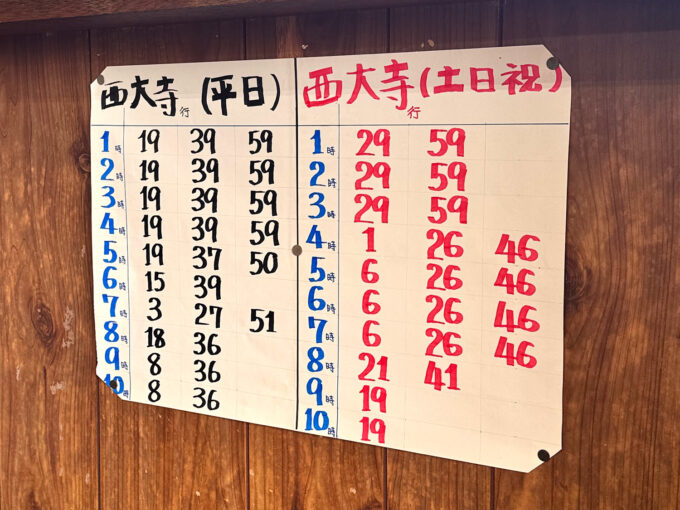 西大寺行(平日)
1時 19 39 59
2時 19 39 59
3時 19 39 59
4時 19 39 59
5時 19 37 50
6時 15 39
7時 3 27 51
8時 18 36
9時 8 36
10時 8 36
西大寺行(土日祝)
1時 29 59
2時 29 59
3時 29 59
4時 1 26 46
5時 6 26 46
6時 6 26 46
7時 6 26 46
8時 21 41
9時 19
10時 19